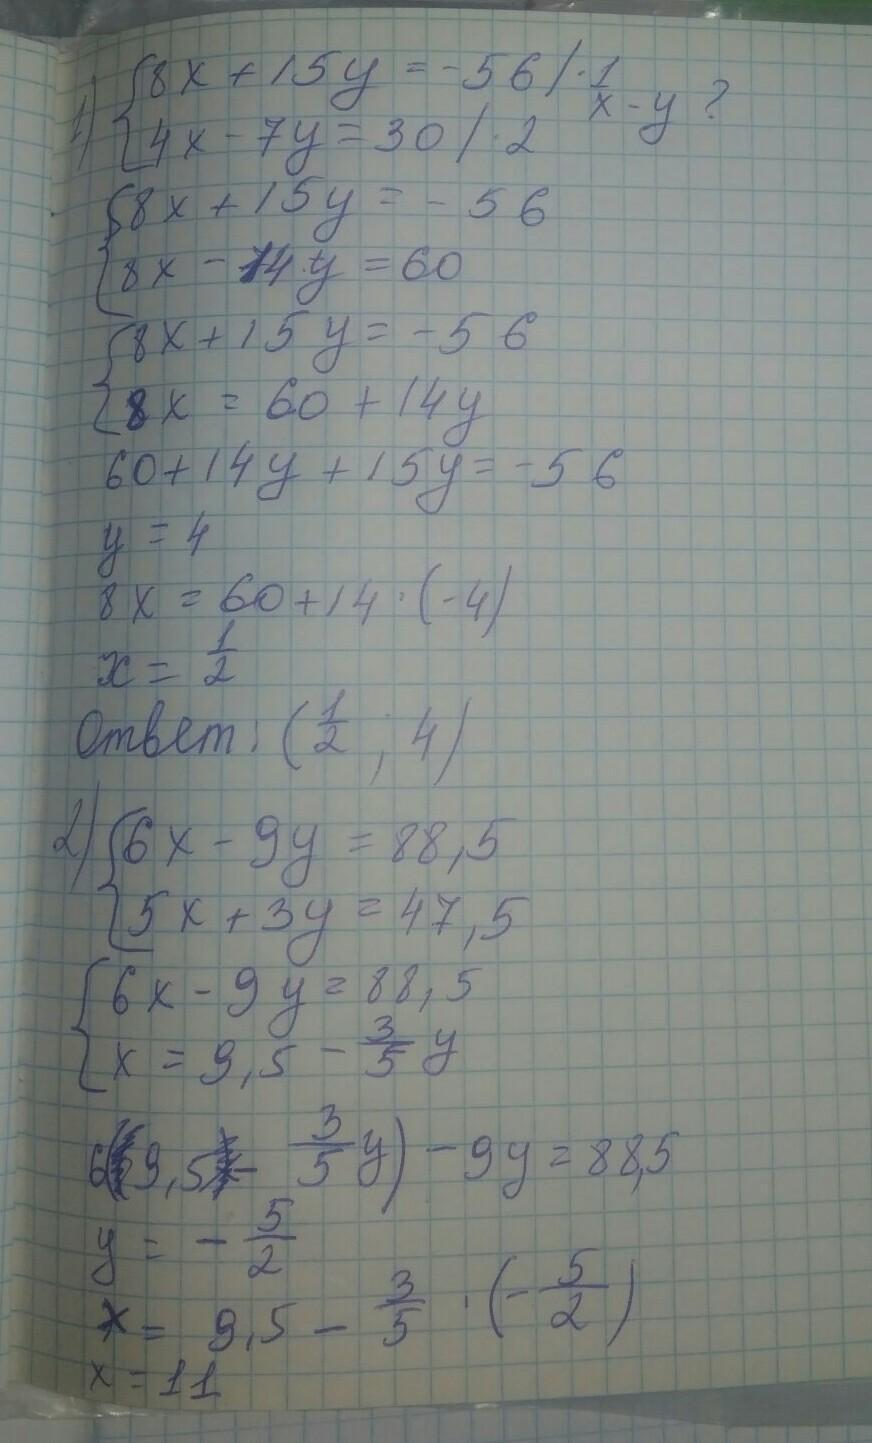 1) {8x + 15y = -56 / · 1
x - y ?
4x - 7y = 30 / · 2
{8x + 15y = - 56
8x - 14y = 60
{8x + 15y = -56
8x = 60 + 14y
60 + 14y + 15y = -56
y = 4
8x = 60 + 14 · (-4)
x = 1/2
Ответ: (1/2 ; 4)
2) {6x - 9y = 88,5
5x + 3y = 47,5
{6x - 9y = 88,5
x = 9,5 - 3/5 y
6(9,5 - 3/5 y) - 9y = 88,5
y = - 5/2
x = 9,5 - 3/5 · (- 5/2)
x = 11